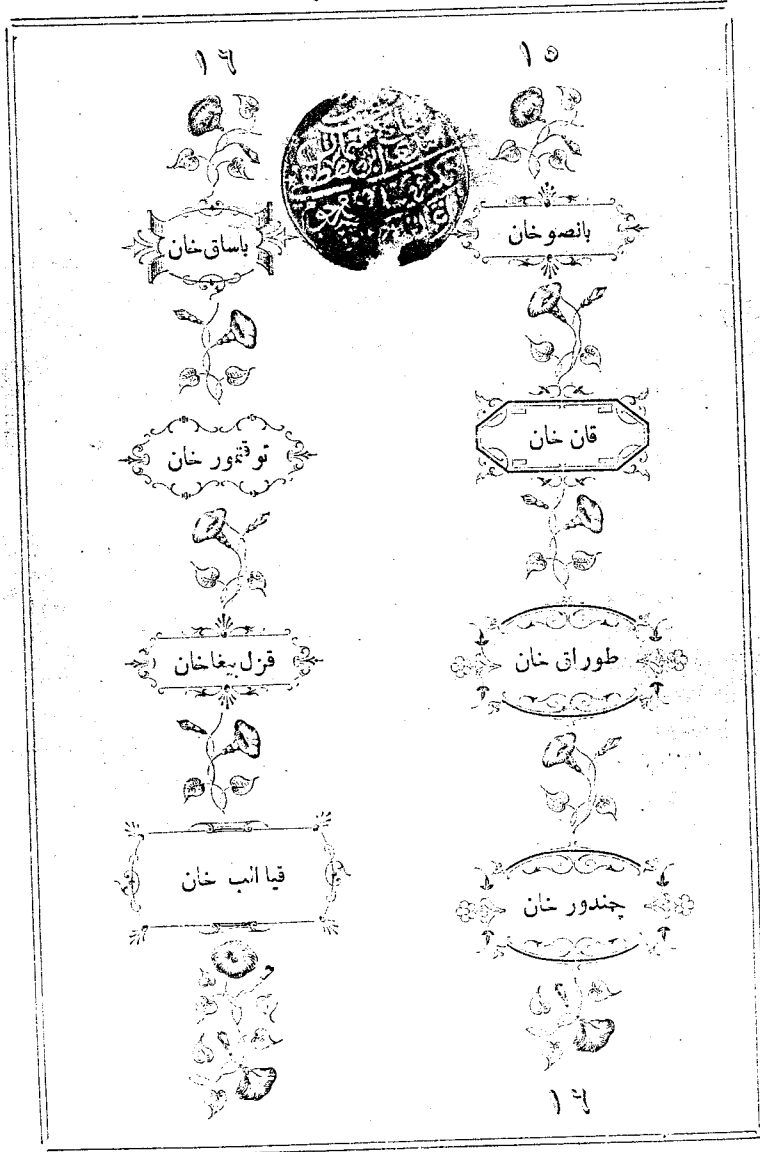 ١٥
بانصو خان
قان خان
طوراق خان
چندور خان
١٦
١٦
باساق خان
توقتمور خان
قزل بیغا خان
قیا الب خان